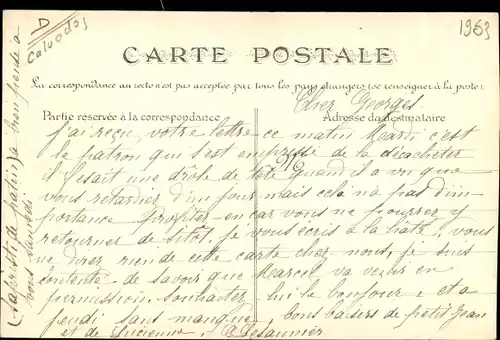 D
Calvados
1963
CARTE POSTALE
La correspondance au recto n'est pas acceptée par tous les pays étrangers (se renseigner à la poste).
Partie réservée à la correspondance
Adresse du destinataire
Cher Georges
J'ai reçu votre lettre ce matin Mardi c'est
le patron qui s'est empressé de la décacheter
il fesait une drole de tête quand il a vu que
vous retardiez d'un jour mais cela n'a pas d'im-
portance profiter-en car vous ne pourrez y
retourner de sitôt, je vous écris à la hate, vous
ne direz rien de cette carte chez nous, je suis
contente de savoir que Marcel va venir en
permission, souhaiter lui le bonjour, et a
jeudi sans manquer, bons baisers de petit Jean
et de Lucienne,